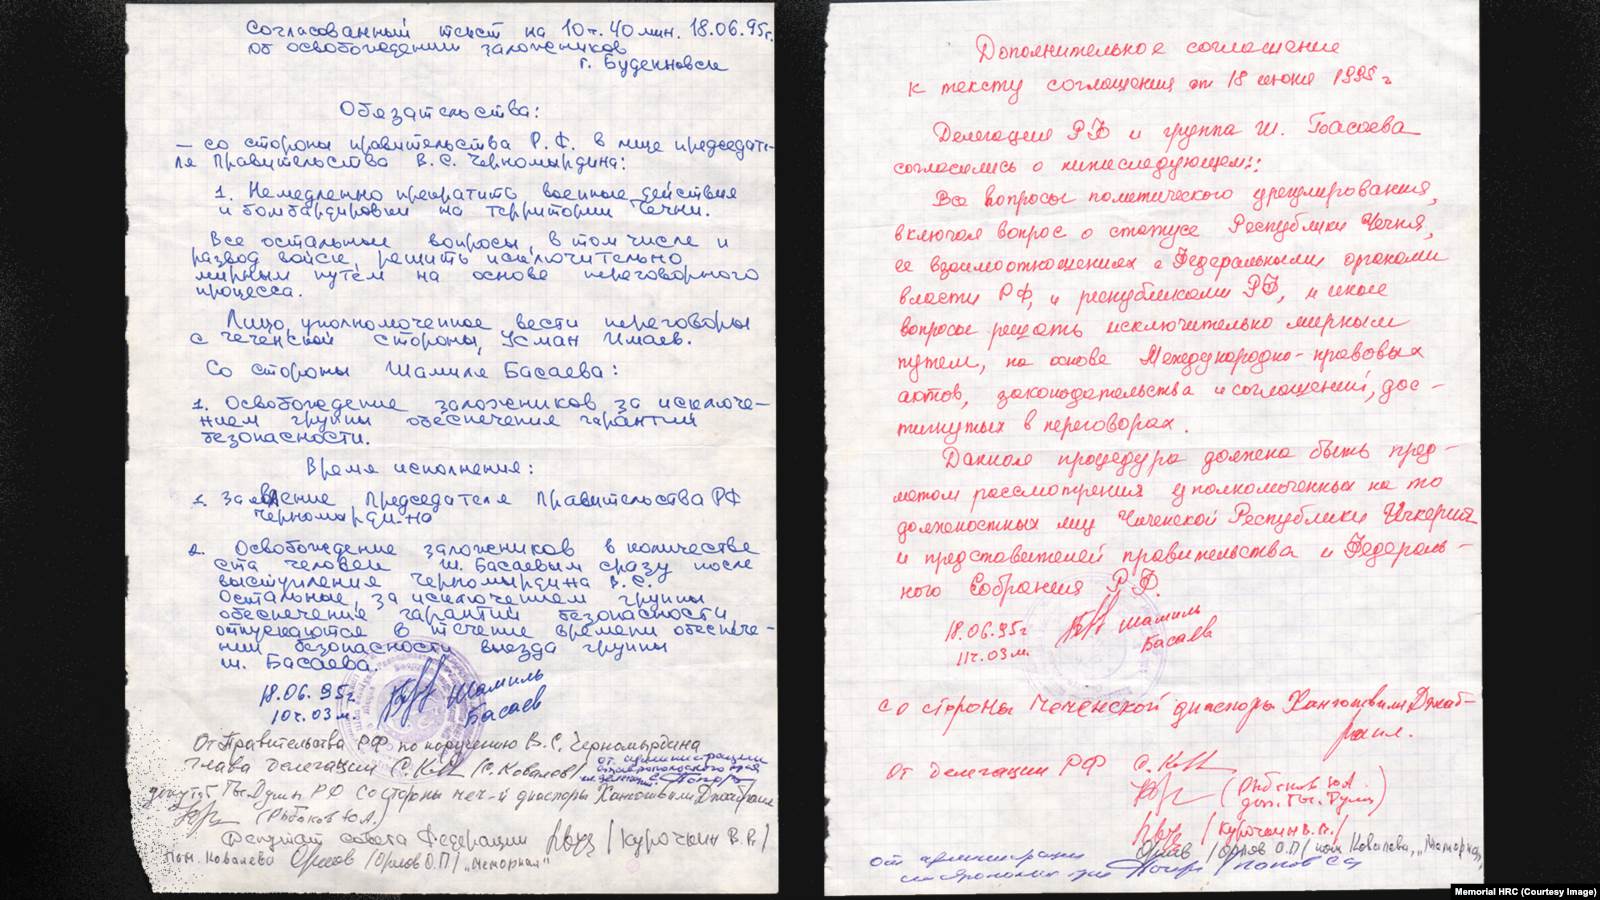 Согласованный текст на 10ч. 40 мин. 18.06.95г.
об освобождении заложников
г. Буденновск
Обязательства:
— со стороны правительства Р.Ф. в лице председате-
ля Правительства В.С. Черномырдина:
1. Немедленно прекратить военные действия
и бомбардировки на территории Чечни.
Все остальные вопросы, в том числе и
развод войск, решить исключительно
мирным путём на основе переговорного
процесса.
Лицо, уполномоченное вести переговоры
с чеченской стороны, Усман Имаев.
Со стороны Шамиля Басаева:
1. Освобождение заложников за исключе-
нием группы обеспечения гарантий
безопасности.
Время исполнения:
1. Заявление Председателя Правительства РФ
Черномырдина
2. Освобождение заложников в количестве
ста человек Ш. Басаевым сразу после
выступления Черномырдина В.С.
Остальные, за исключением группы
обеспечения гарантий безопасности
отпускаются в течение времени обеспече-
нии безопасности выезда группы
Ш. Басаева.
18.06.95г. Шамиль
10ч.03м. Басаев
От Правительства РФ по поручению В.С. Черномырдина
глава делегации (С. Ковалов) от администрации
Ставропольского края
депутат Гос Думы РФ со стороны чеч-й диаспоры Хангошвили Джабраил
(Рыбаков Ю.А.)
Депутат совета Федерации /Курочкин В.В./
пом. Ковалева Орлов /Орлов О.П/ "Мемориал"
Дополнительное соглашение
к тексту соглашения от 18 июня 1995 г
Делегация РФ и группа Ш. Басаева
согласились о нижеследующем:
Все вопросы политического урегулирования,
включая вопрос о статусе Республики Чечня,
ее взаимоотношениях с Федеральными органами
власти РФ, и республиками РФ, и иные
вопросы решать исключительно мирным
путем, на основе Международно-правовых
актов, законодательства и соглашений, дос-
тигнутых в переговорах.
Данная процедура должна быть пред-
метом рассмотрения уполномоченных на то
должностных лиц Чеченской Республики Ичкерия
и представителей правительства и Федераль-
ного Собрания Р.Ф.
18.06.95г Шамиль
11ч.03м. Басаев
со стороны Чеченской диаспоры Хангошвили Джаб-
раил.
От делегации РФ
(Рыбаков Ю.А.
деп. Гос. Думы)
/Курочкин В.В./
Орлов /Орлов О.П/ пом Ковалева, "Мемориал"
от администрации
Ставропольского края Попов
Memorial HRC (Courtesy Image)